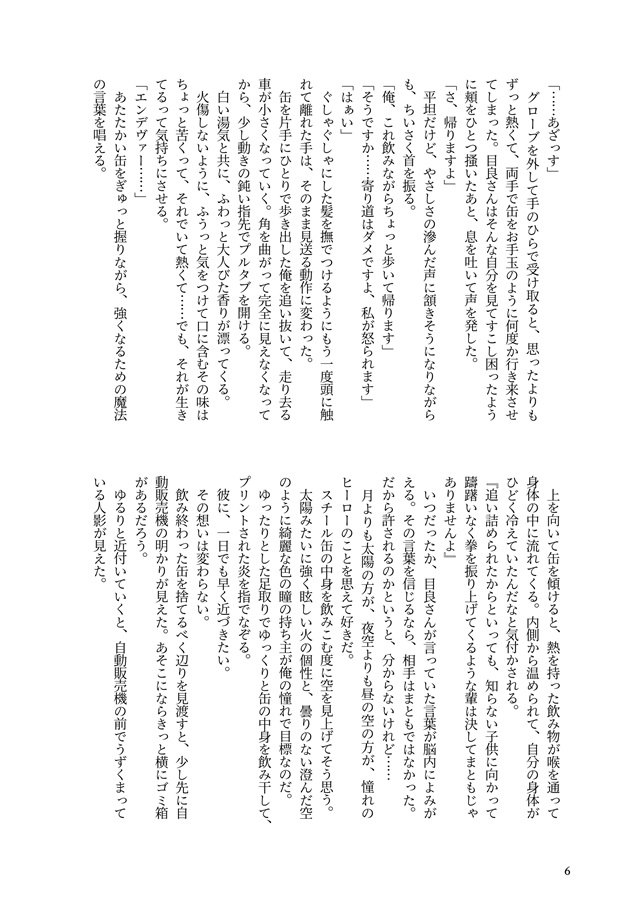 「……あざっす」
　グローブを外して手のひらで受け取ると、思ったよりも
ずっと熱くて、両手で缶をお手玉のように何度か行き来させ
てしまった。目良さんはそんな自分を見てすこし困ったよう
に頬をひとつ掻いたあと、息を吐いて声を発した。
「さ、帰りますよ」
　平坦だけど、やさしさの滲んだ声に頷きそうになりながら
も、ちいさく首を振る。
「俺、これ飲みながらちょっと歩いて帰ります」
「そうですか……寄り道はダメですよ、私が怒られます」
「はぁい」
　ぐしゃぐしゃにした髪を撫でつけるようにもう一度頭に触
れて離れた手は、そのまま見送る動作に変わった。
　缶を片手にひとりで歩き出した俺を追い抜いて、走り去る
車が小さくなっていく。角を曲がって完全に見えなくなって
から、少し動きの鈍い指先でプルタブを開ける。
　白い湯気と共に、ふわっと大人びた香りが漂ってくる。
　火傷しないように、ふうっと気をつけて口に含むその味は
ちょっと苦くって、それでいて熱くて……でも、それが生き
てるって気持ちにさせる。
「エンデヴァー……」
　あたたかい缶をぎゅっと握りながら、強くなるための魔法
の言葉を唱える。
　上を向いて缶を傾けると、熱を持った飲み物が喉を通って
身体の中に流れてくる。内側から温められて、自分の身体が
ひどく冷えていたんだなと気付かされる。
『追い詰められたからといっても、知らない子供に向かって
躊躇いなく拳を振り上げてくるような輩は決してまともじゃ
ありませんよ』
　いつだったか、目良さんが言っていた言葉が脳内によみが
える。その言葉を信じるなら、相手はまともではなかった。
だから許されるのかというと、分からないけれど……
　月よりも太陽の方が、夜空よりも昼の空の方が、憧れの
ヒーローのことを思えて好きだ。
　スチール缶の中身を飲みこむ度に空を見上げてそう思う。
　太陽みたいに強く眩しい火の個性と、曇りのない澄んだ空
のように綺麗な色の瞳の持ち主が俺の憧れで目標なのだ。
　ゆったりとした足取りでゆっくりと缶の中身を飲み干して、
プリントされた炎を指でなぞる。
　彼に、一日でも早く近づきたい。
　その想いは変わらない。
　飲み終わった缶を捨てるべく辺りを見渡すと、少し先に自
動販売機の明かりが見えた。あそこにならきっと横にゴミ箱
があるだろう。
　ゆるりと近付いていくと、自動販売機の前でうずくまって
いる人影が見えた。
6